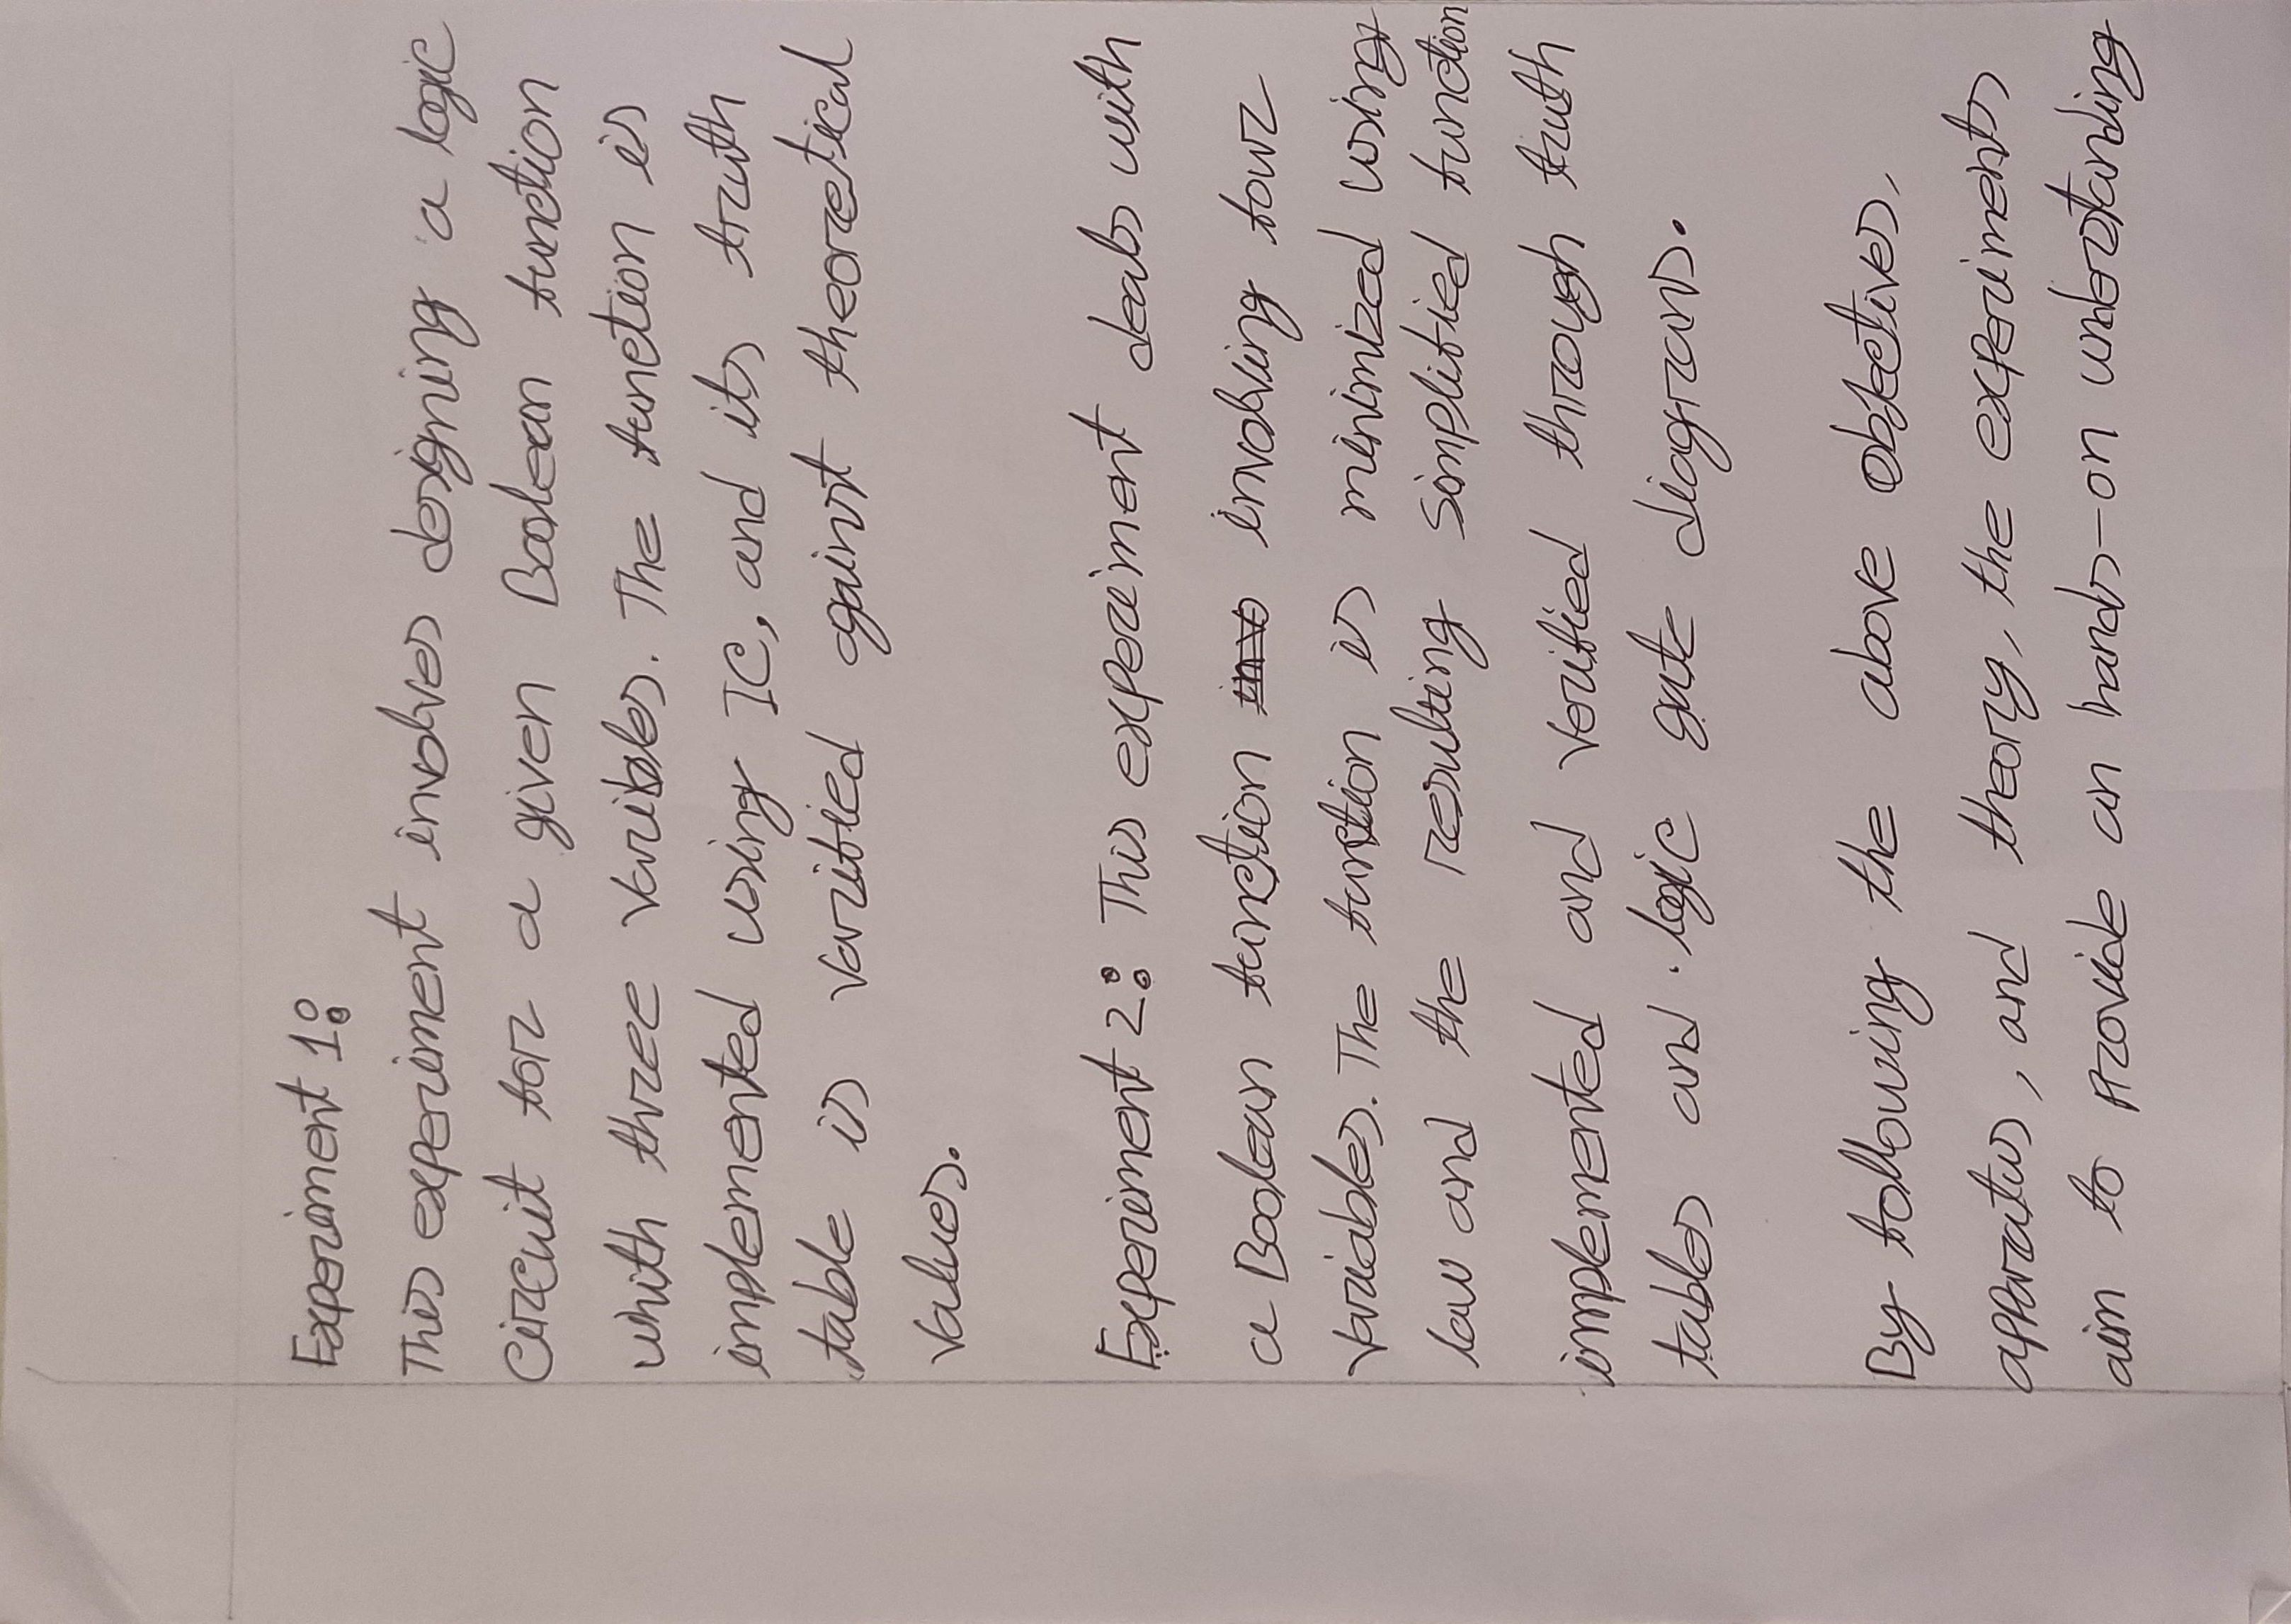 Experiment 1:
This experiment involves designing a logic
circuit for a given Boolean function
whith three varibles. The function is
implemented using IC, and its truth
table is varified against theoretical
values.
Experiment 2: This experiment deals with
a Boolean function inv involving four
variables. The function is minimized using
law and the resulting simplified function
implemented and verified through truth
tables and logic gate diagrans.
By following the above objectives,
apparatus, and theory, the experiments
aim to provide an hands-on understanding